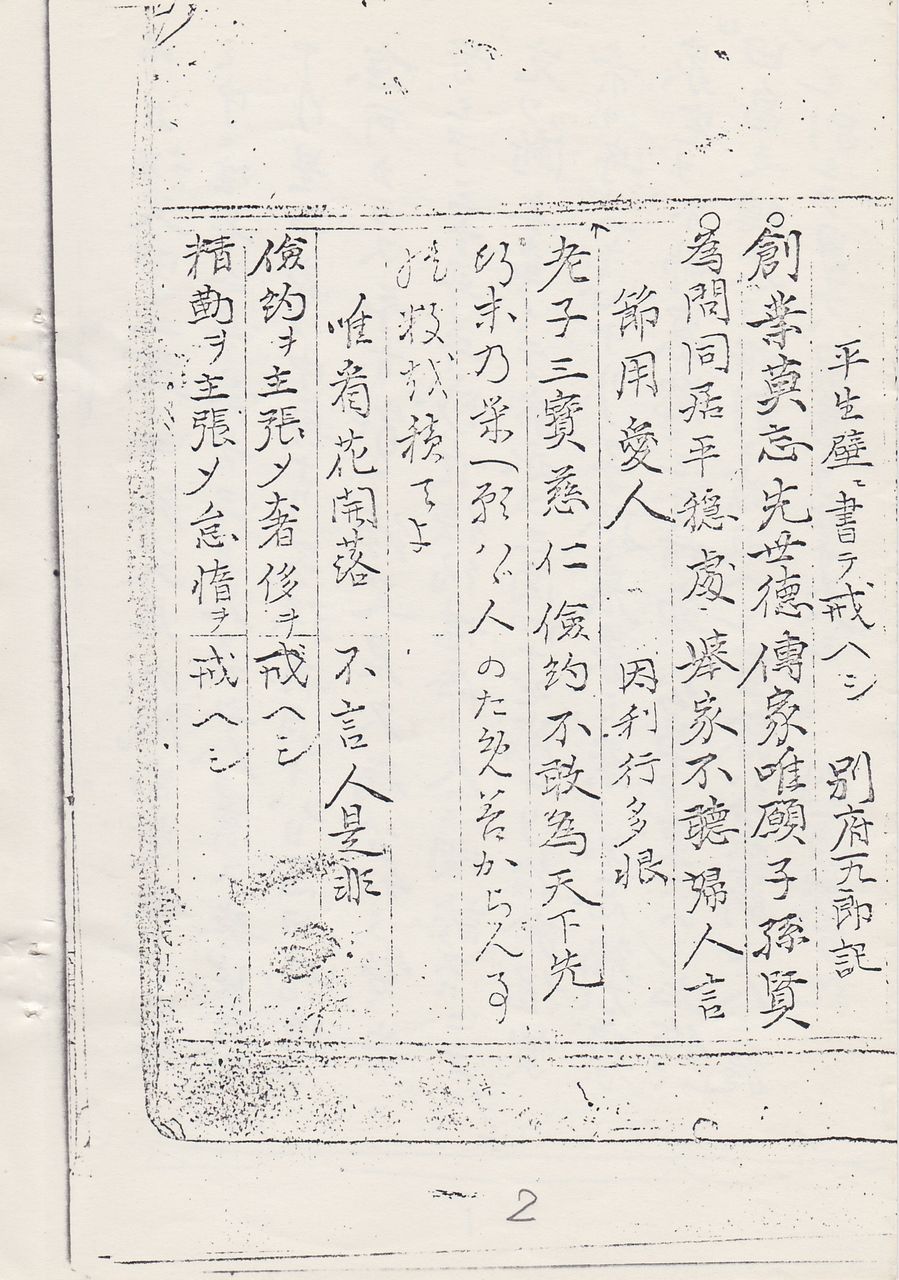 平生壁ニ書テ戒ヘシ 別府九郎記
創業莫忘先世德傳家唯願子孫賢
為問同居平穏處 擧家不聽婦人言
節用愛人 因利行多恨
老子三寶慈仁儉約不敢為天下先
乃 ハヾ人のため苦からん
積てよ
唯看花開落 不言人是非
儉約ヲ主張〆奢侈ヲ戒ヘシ
精勤ヲ主張〆怠惰ヲ戒ヘシ
2